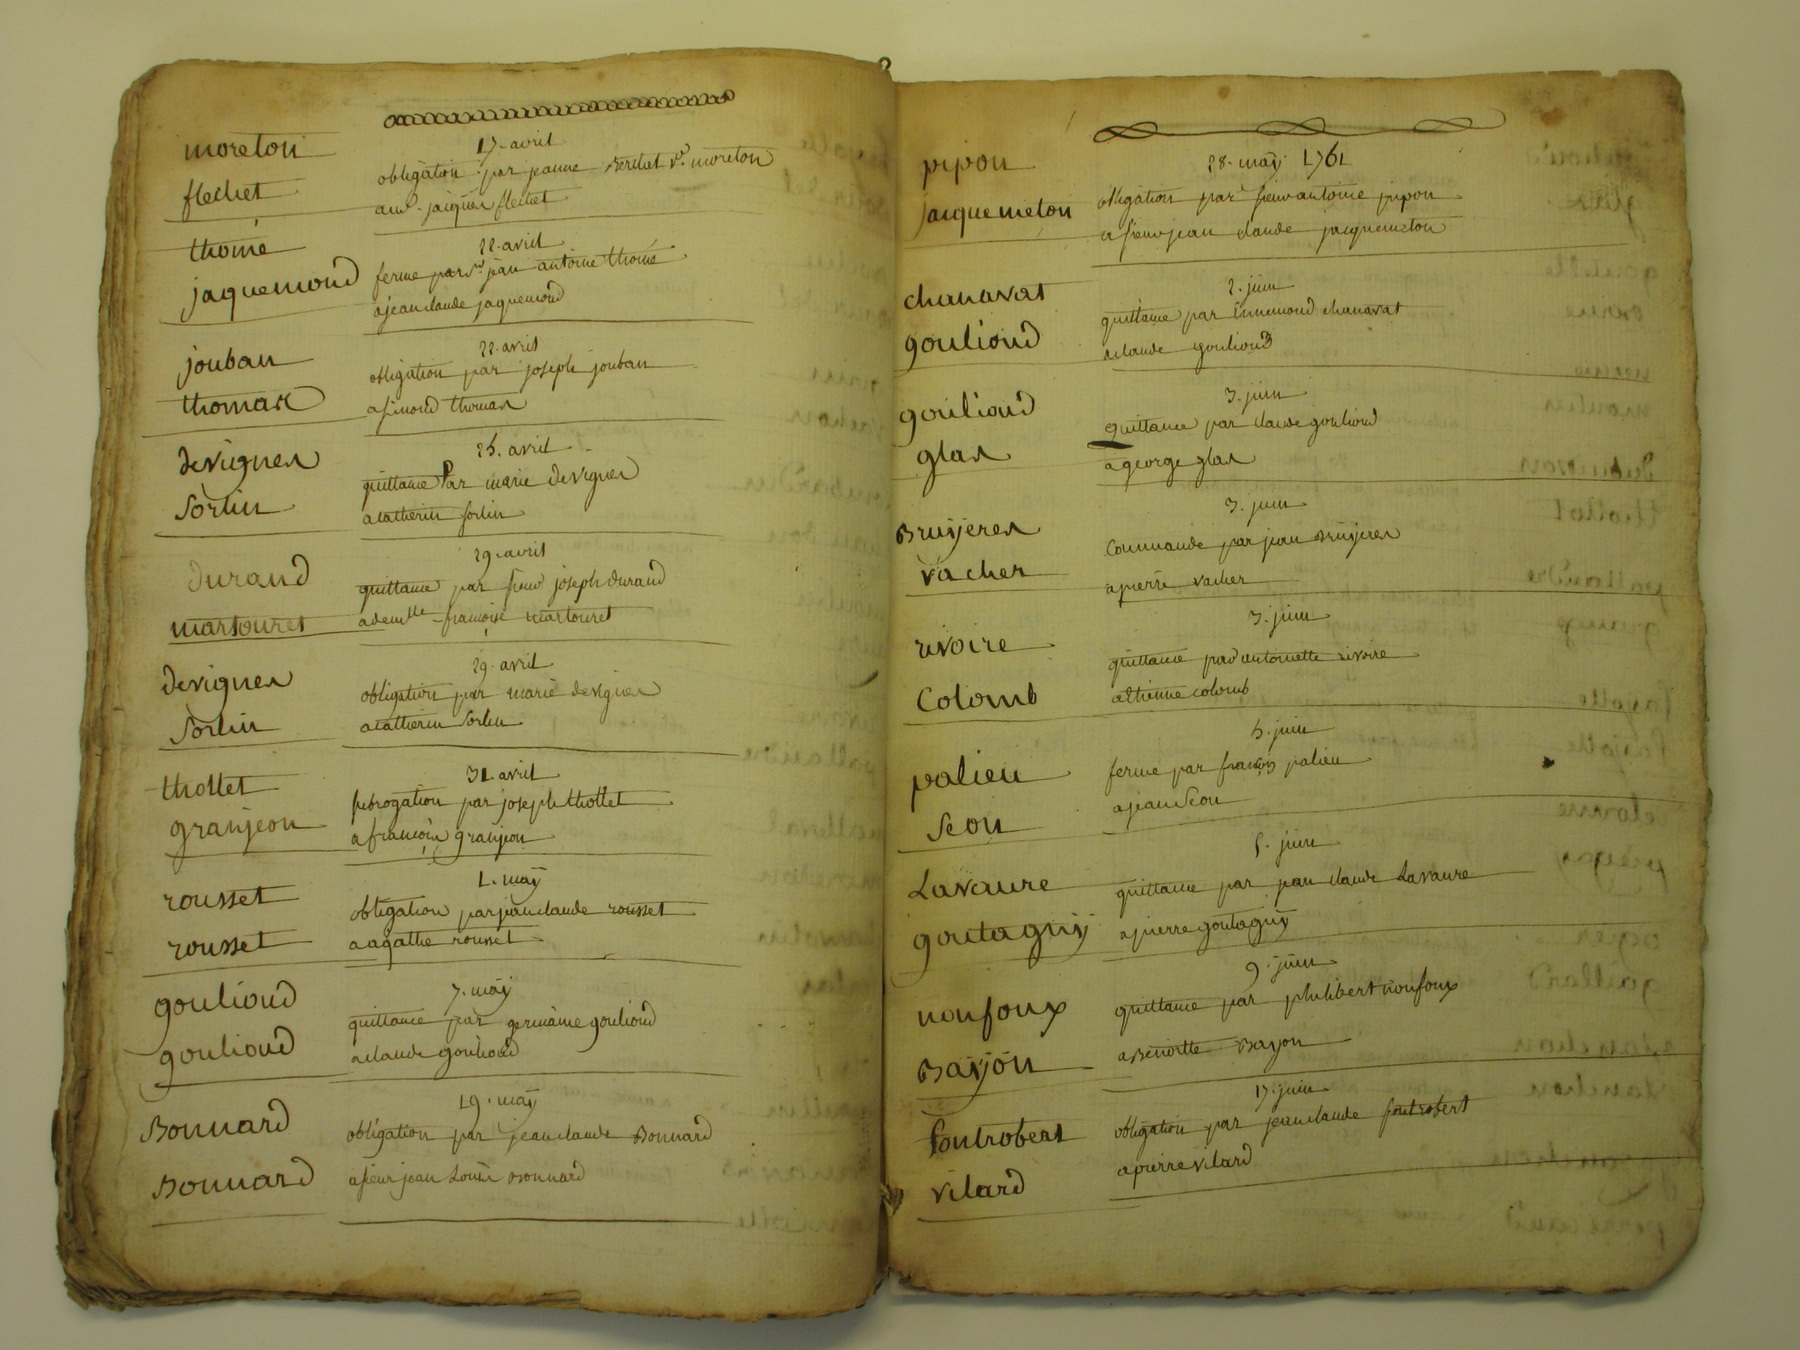 moreton
flechet
17. avril
obligation par jeanne Berthet v.e moreton
au s.r jacques flechet
thomé
jaquemond
22. avril
ferme par s.r jean antoine thomé
a jean claude jaquemond
jouban
thomas
22. avril
obligation par joseph jouban
a simond thomas
devignes
sorlin
25. avril
quittance par marie devignes
a catherin sorlin
durand
martouret
29. avril
quittance par sieur joseph durand
a dem.lle francoise martouret
devignes
sorlin
29. avril
obligation par marie devignes
a catherin sorlin
thollet
granjeon
31. avril
subrogation par joseph thollet
a francois granjeon
rousset
rousset
1. maÿ
obligation par jean claude rousset
a agathe rousset
goulioud
goulioud
7. maÿ
quittance par germaine goulioud
a claude goulioud
Bonnard
Bonnard
19. maÿ
obligation par jean claude Bonnard
a sieur jean Louis Bonnard
pipon
jacquemeton
28. maÿ 1761
obligation par sieur antoine pipon
a sieur jean claude jacquemeton
chanavat
goulioud
2. juin
quittance par Ennemond chanavat
a claude goulioud
goulioud
glas
3. juin
quittance par claude goulioud
a george glas
Bruÿeres
vacher
3. juin
Commande par jean Bruÿeres
a pierre vacher
rivoire
Colomb
3. juin
quittance par antoinette rivoire
a etienne colomb
palieu
seon
5. juin
ferme par francois palieu
a jean seon
Lavaure
goutaguÿ
5. juin
quittance par jean claude Lavaure
a pierre goutaguÿ
nonfoux
Baÿon
9. juin
quittance par philibert nonfoux
a Benoitte Bayon
fontrobert
vilard
17. juin
obligation par jean claude fontrobert
a pierre vilard